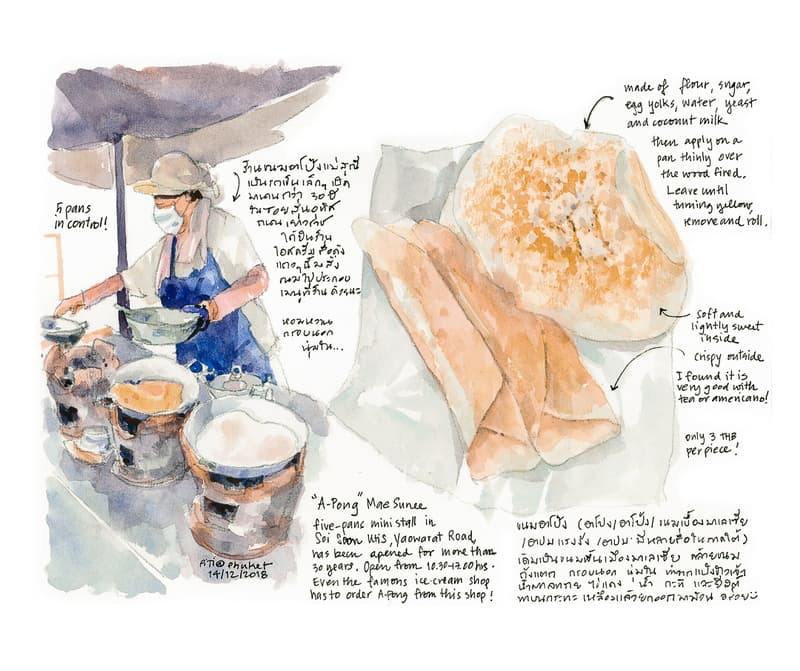 5 pans
in control!
ร้านขนมอาโป้งแม่สุณี
เป็นรถเข็นเล็กๆ เปิด
มานานกว่า 30 ปี
ในซอยสุ่นอุทิศ
ถนนเยาวราช
ไอศครีม
หอมหวาน
กรอบนอก
นุ่มใน...
made of flour, sugar,
egg yolks, water, yeast
and coconut milk
then apply on a
pan thinly over
the wood fired.
Leave until
turning yellow,
remove and roll.
soft and
lightly sweet
inside
crispy outside
I found it is
very good with
tea or americano!
only 3 THB
per piece!
"A-Pong" Mae Sunee
five-pans mini stall in
Soi Soon Utis, Yaowarat Road,
has been opened for more than
30 years. Open from 10.30-17.00 hrs.
Even the famous ice-cream shop
has to order A-Pong from this shop!
@ phuket
14/12/2018
ขนมอาโป้ง (อาโปง/อาโป๊ง/ขนมเบื้องมาเลเซีย
เดิมเป็นขนมพื้นเมืองมาเลเซีย คล้ายขนม
กรอบนอก นุ่มใน ทำจากแป้งข้าวเจ้า
น้ำตาลทราย ไข่แดง น้ำ กะทิ และยีสต์